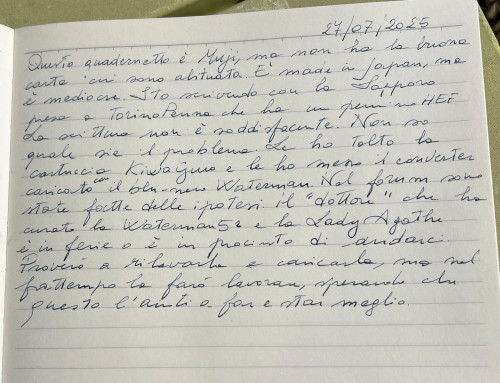 27/07/2025
Questo quadernetto è Muji, ma non ha la buona
carta cui sono abituata. È made in Japan, ma
è mediocre. Sto scrivendo con la
presa a TorinoPenna che ha un pennino HEF
La scrittura non è soddisfacente. Non so
quale sia il problema. Le ho tolto la
cartuccia e le ho messo il converter
caricato con il blu-nero Waterman. Nel forum sono
state fatte delle ipotesi. Il "dottore" che ha
curato la Waterman 52 e la Lady Agathe
è in ferie o è in procinto di andarci.
Proverò a rilavarla e caricarla, ma nel
frattempo la farò lavorare, sperando che
questo l'aiuti a far e star meglio.